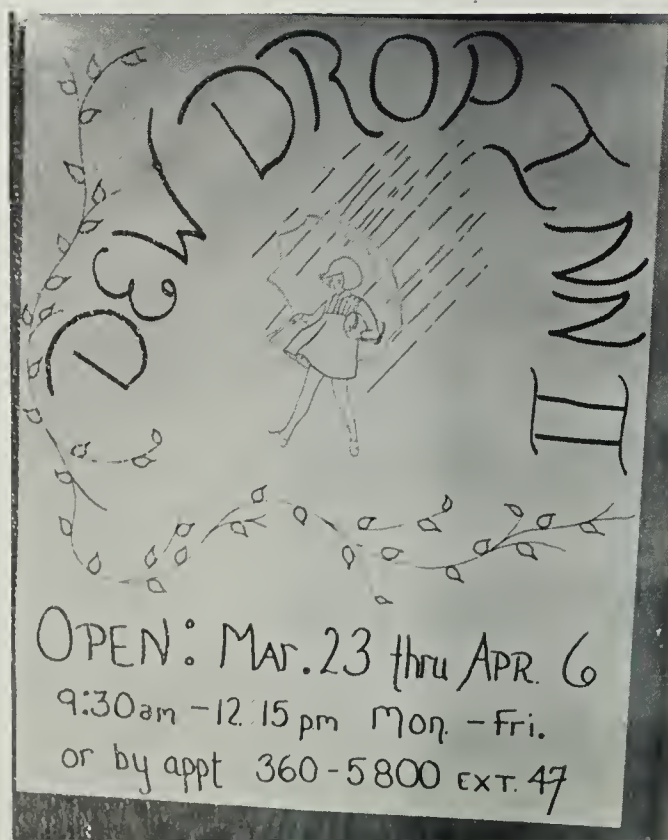 DEW DROP INN II
OPEN: Mar. 23 thru APR. 6
9:30am - 12:15pm Mon. - Fri.
or by appt 360-5800 EXT. 47